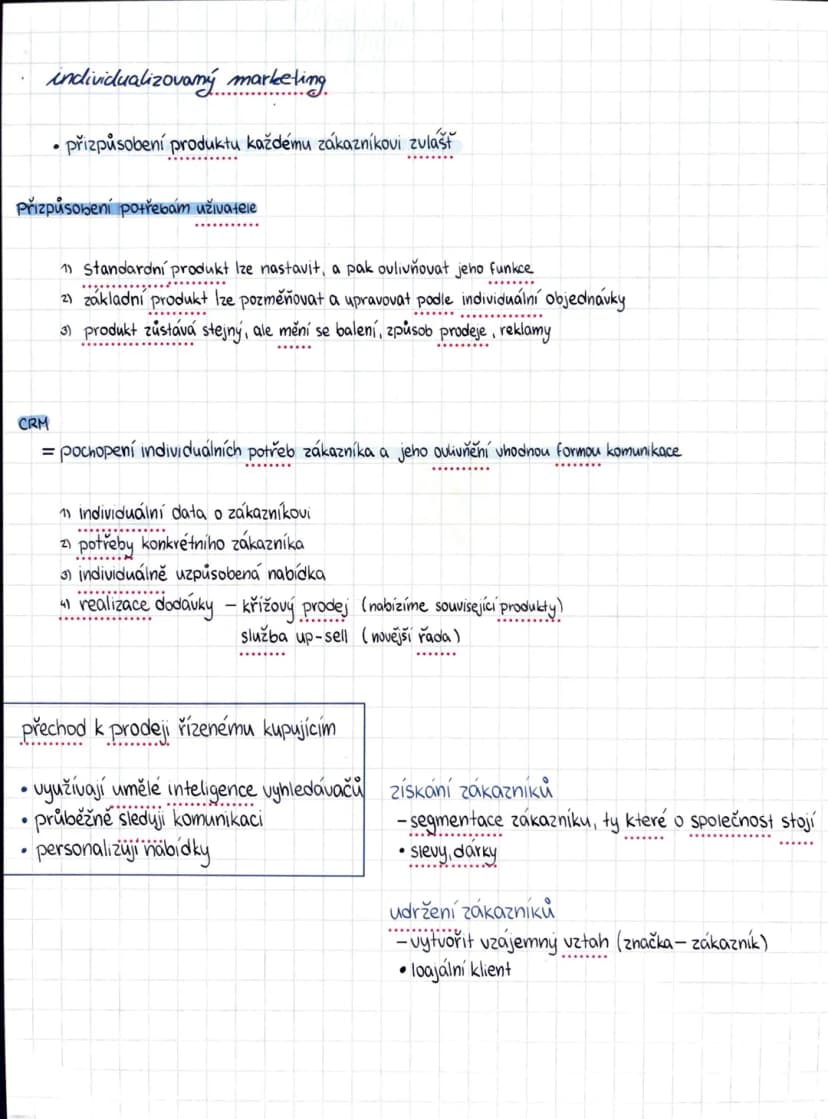 individualizovaný marketing
• přizpůsobení produktu každému zákazníkovi zvlášť
Přizpůsobení potřebám uživatele
1) standardní produkt lze nastavit, a pak ovlivňovat jeho funkce
2) základní produkt lze pozměňovat a upravovat podle individuální objednávky
3) produkt zůstává stejný, ale mění se balení, způsob prodeje, reklamy
CRM
= pochopení individuálních potřeb zákazníka a jeho ovlivňění vhodnou formou komunikace
1) individuální data o zákazníkovi
2) potřeby konkrétního zákazníka
3) individuálně uzpůsobená nabídka
4) realizace dodávky – křížový prodej (nabízíme související produkty)
služba up-sell (novější řada)
přechod k prodeji řízenému kupujícím
• využívají umělé inteligence vyhledávačů
• průběžně sledují komunikaci
• personalizují nabídky
získání zákazníků
– segmentace zákazníku, ty které o společnost stojí
• slevy, dárky
udržení zákazníků
– vytvořit vzájemný vztah (značka – zákazník)
• loajální klient